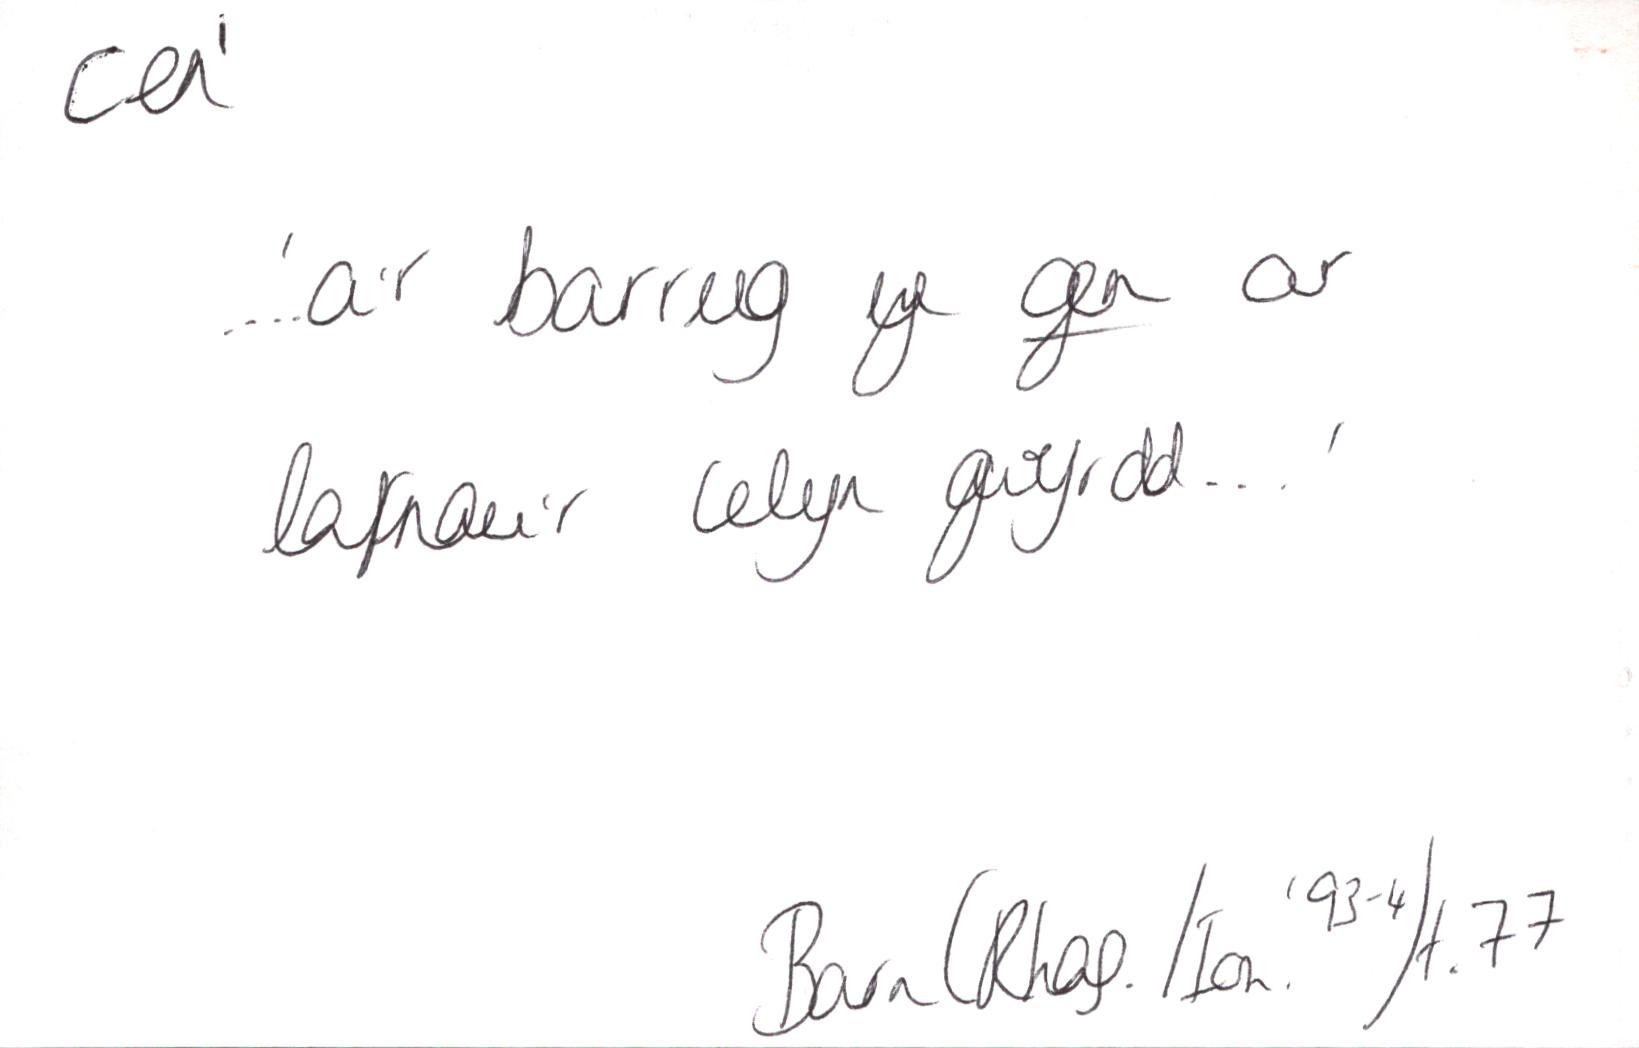 cen¹
...'a'r barrug yn gen ar
lafnau'r celyn gwyrdd....'
Barn (Rhag./Ion. '93-4) t.77